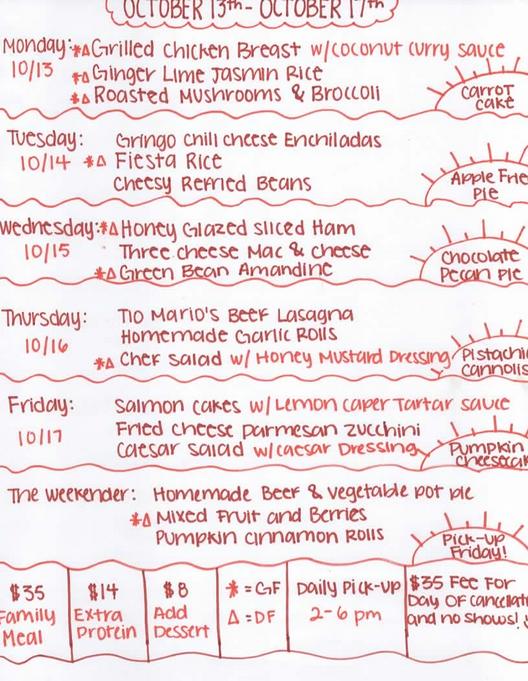 OCTOBER 13th - OCTOBER 17th
Monday: *Δ Grilled Chicken Breast w/coconut curry sauce
10/13 *Δ Ginger Lime Jasmin Rice
*Δ Roasted Mushrooms & Broccoli
Carrot
Cake
Tuesday: Gringo Chili Cheese Enchiladas
10/14 *Δ Fiesta Rice
Cheesy Refried Beans
Apple Frie
Pie
Wednesday: *Δ Honey Glazed Sliced Ham
10/15 Three Cheese Mac & Cheese
*Δ Green Bean Amandine
Chocolate
Pecan Pie
Thursday: Tio Mario's Beef Lasagna
10/16 Homemade Garlic Rolls
*Δ Chef Salad w/ Honey Mustard Dressing
Pistachi
Cannolis
Friday: Salmon Cakes w/ Lemon Caper Tartar Sauce
10/17 Fried Cheese Parmesan Zucchini
Caesar Salad w/caesar Dressing
Pumpkin
Cheesecak
The Weekender: Homemade Beef & Vegetable Pot Pie
*Δ Mixed Fruit and Berries
Pumpkin Cinnamon Rolls
Pick-up
Friday!
$35
Family
Meal
$14
Extra
Protein
$8
Add
Dessert
* = GF
Δ = DF
Daily Pick-up
2-6 pm
$35 Fee For
Day OF Cancellati
and no shows!